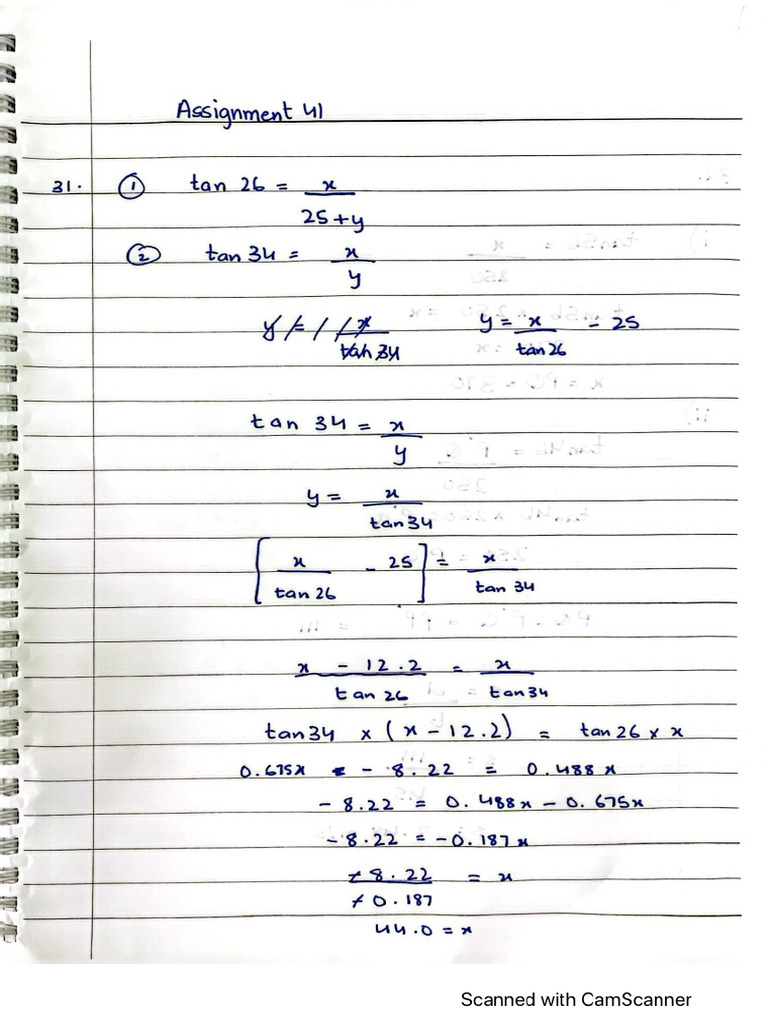 Assignment 41
31. ① tan 26 = x / 25+y
② tan 34 = x / y
y = x / tan 34 y = x / tan 26 - 25
tan 34 = x / y
y = x / tan 34
[ x / tan 26 - 25 ] = x / tan 34
x - 12.2 / tan 26 = x / tan 34
tan 34 × (x - 12.2) = tan 26 × x
0.675x - 8.22 = 0.488x
- 8.22 = 0.488x - 0.675x
- 8.22 = -0.187x
-8.22 / -0.187 = x
44.0 = x
Scanned with CamScanner